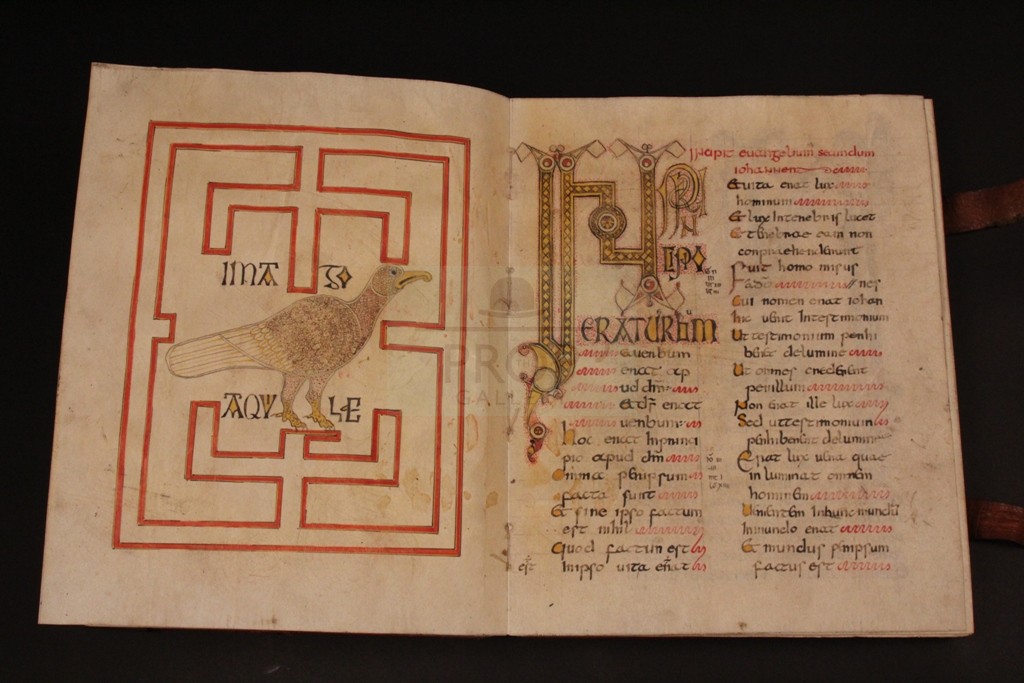 IMA GO
AQU ILE
IN PRIN
CIPIO
ERAT UERBUM
et uerbum
erat ap
ud dm
Et ds erat
uerbum
hoc erat in princi
pio apud dm
omnia per ipsum
facta sunt
Et sine ipso factum
est nihil
Quod factum est
est
In ipso uita erat
Incipit euangelium secundum
iohannem
Et uita erat lux
hominum
Et lux in tenebris lucet
Et tenebrae eam non
comprehenderunt
Fuit homo misus
nes
Cui nomen erat iohan
hic uenit In testimonium
Ut testimonium perhi
beret de lumine
Ut omnes crederent
per illum
Non erat ille lux
Sed ut testimonium
perhiberet de lumine
Erat lux uera quae
inluminat omnem
hominem
Uenientem In hunc mundū
In mundo erat
Et mundus per ipsum
factus est